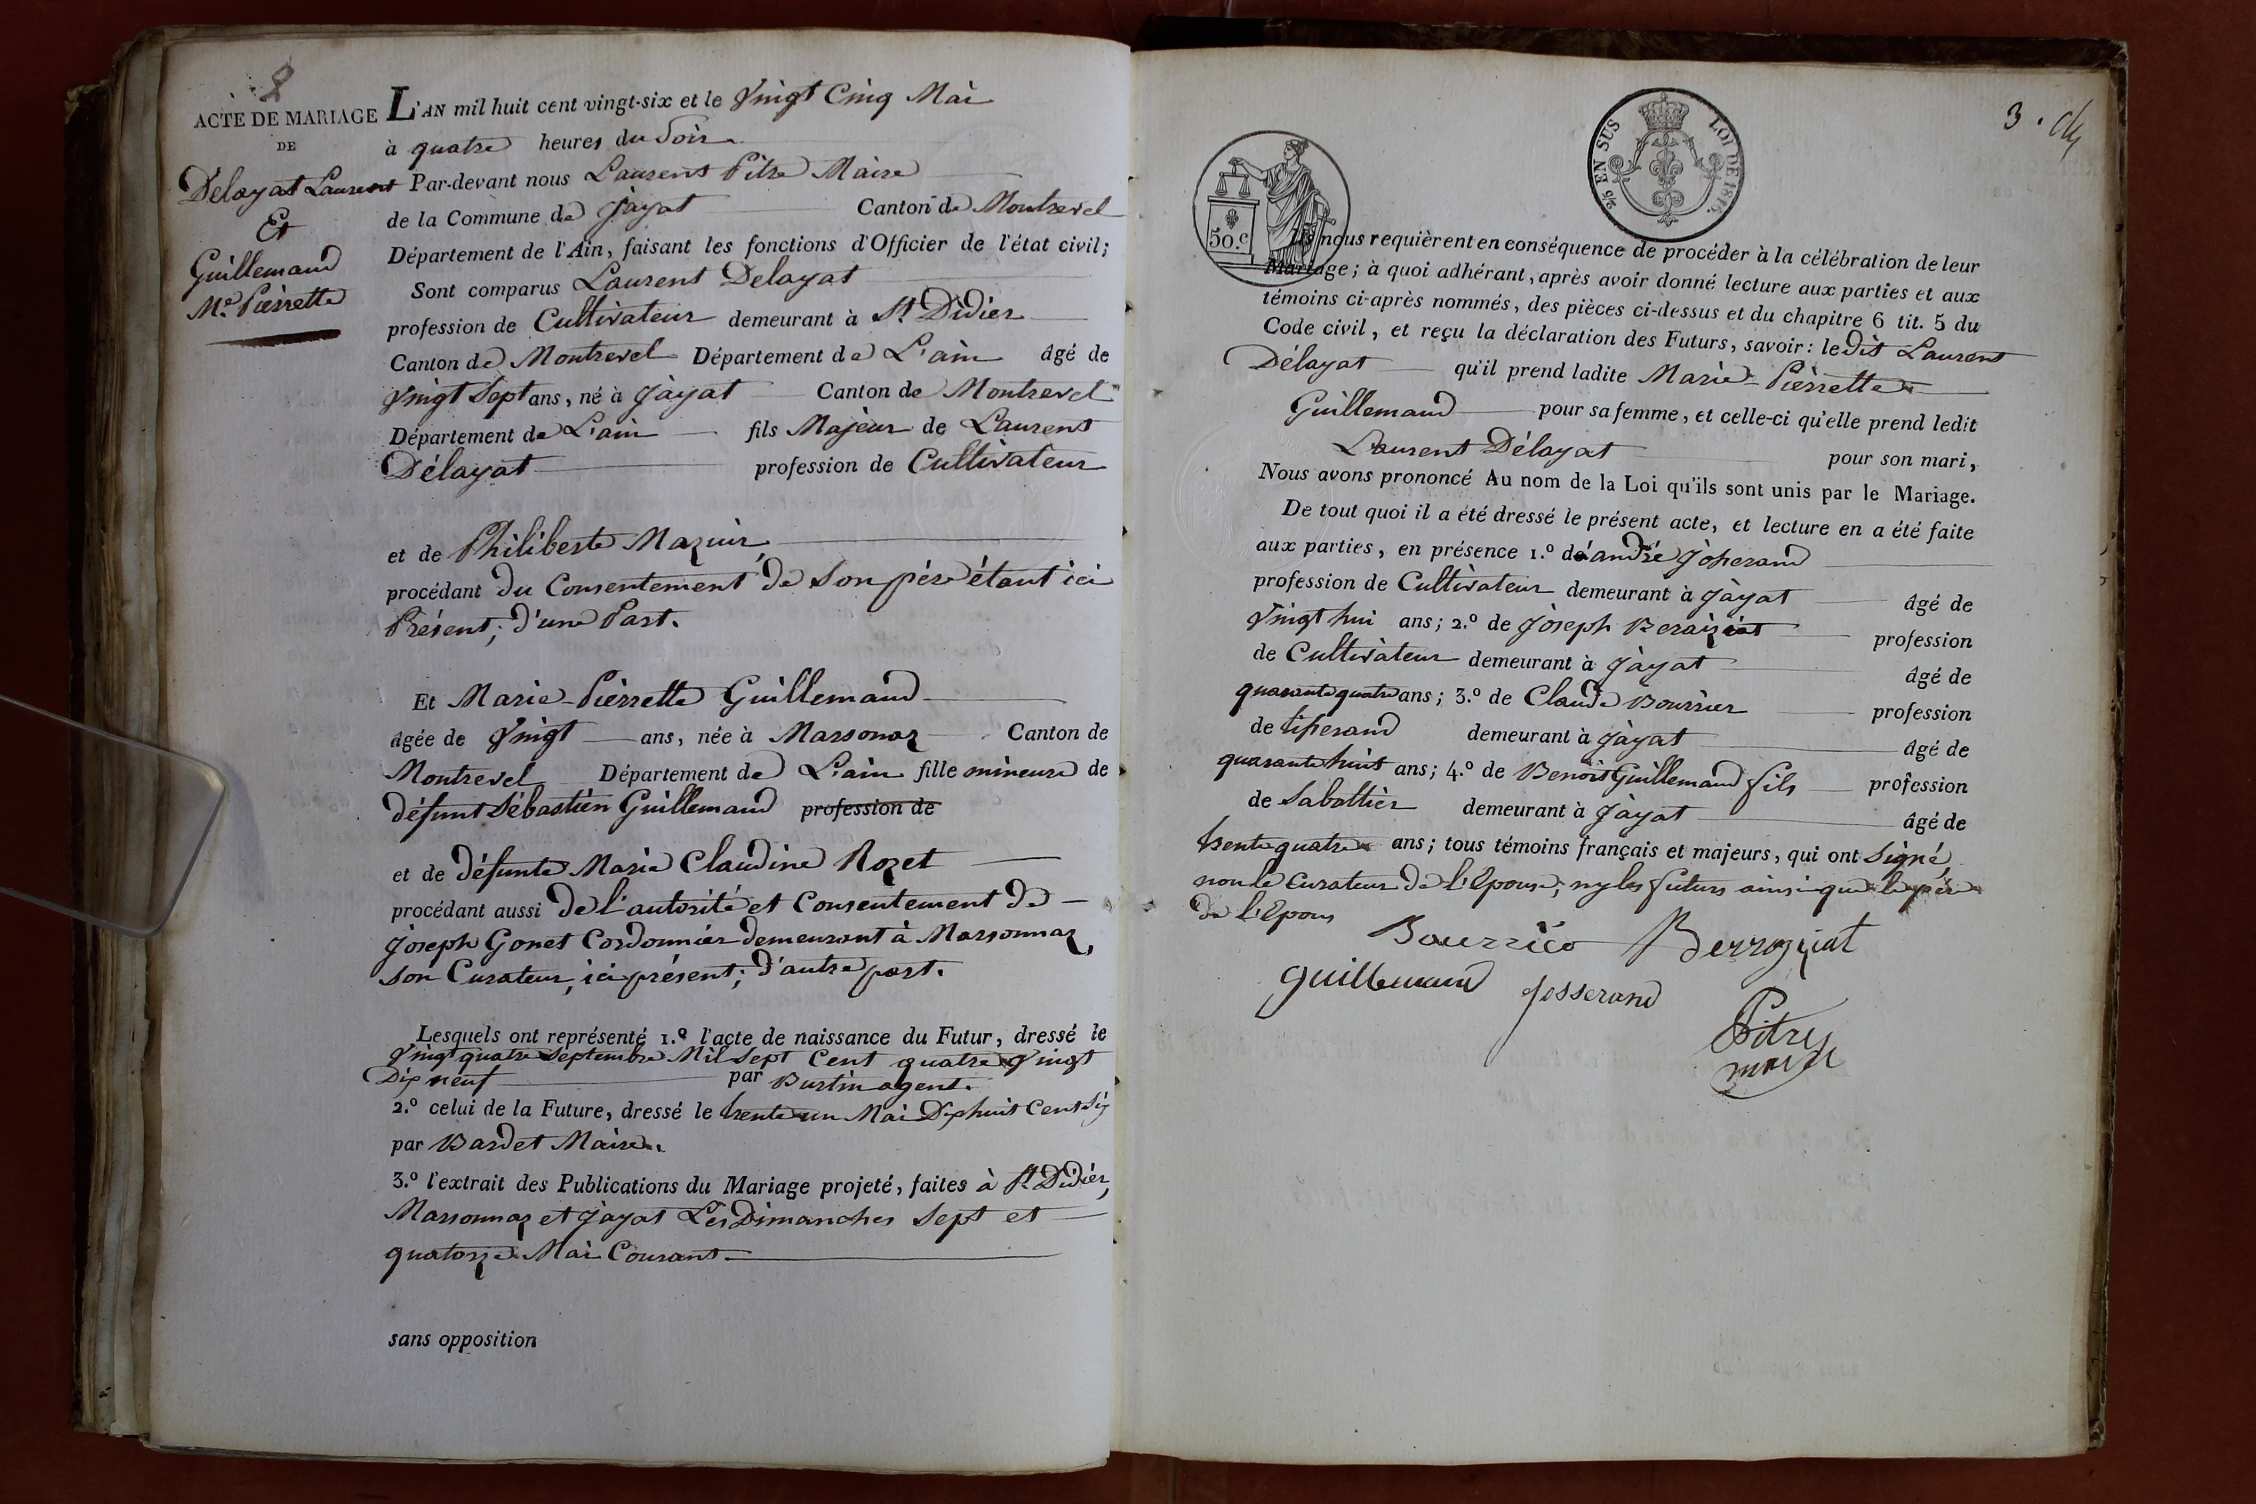 8
ACTE DE MARIAGE
DE
Delayat Laurent
Et
Guillemaud
Me. Pierrette
L'AN mil huit cent vingt-six et le Vingt Cinq Mai
à quatre heures du Soir
Par-devant nous Laurent Pitre Maire
de la Commune de Jayat Canton de Montrevel
Département de l'Ain, faisant les fonctions d'Officier de l'état civil;
Sont comparus Laurent Delayat
profession de Cultivateur demeurant à St Didier
Canton de Montrevel Département de L'ain âgé de
Vingt Sept ans, né à Jayat Canton de Montrevel
Département de L'ain fils Majeur de Laurent
Délayat profession de Cultivateur
et de Philiberte Mazuir,
procédant du Consentement de Son père étant ici
Présent; d'une Part.
Et Marie Pierrette Guillemaud
âgée de Vingt ans, née à Marsonaz Canton de
Montrevel Département de L'ain fille mineure de
défunt Sébastien Guillemaud profession de
et de défunte Marie Claudine Rozet
procédant aussi de l'autorité et Consentement de
Joseph Gonet Cordonnier demeurant à Marsonnaz,
Son Curateur, ici présent; d'autre part.
Lesquels ont représenté 1.º l'acte de naissance du Futur, dressé le
Vingt quatre Septembre Mil Sept Cent quatre Vingt
Dix neuf par Burtin agent.
2.º celui de la Future, dressé le trente un Mai Dix huit Cent Six
par Bardet Maire.
3.º l'extrait des Publications du Mariage projeté, faites à St Didier,
Marsonnaz et Jayat Les Dimanches Sept et
quatorze Mai Courant.
sans opposition
3.
50.c
25 EN SUS LOI DE 1816.
Ils nous requièrent en conséquence de procéder à la célébration de leur
Mariage; à quoi adhérant, après avoir donné lecture aux parties et aux
témoins ci-après nommés, des pièces ci-dessus et du chapitre 6 tit. 5 du
Code civil, et reçu la déclaration des Futurs, savoir: ledit Laurent
Délayat qu'il prend ladite Marie Pierrette
Guillemaud pour sa femme, et celle-ci qu'elle prend ledit
Laurent Délayat pour son mari,
Nous avons prononcé Au nom de la Loi qu'ils sont unis par le Mariage.
De tout quoi il a été dressé le présent acte, et lecture en a été faite
aux parties, en présence 1.º d'andré Joserand
profession de Cultivateur demeurant à Jayat âgé de
Vingt hui ans; 2.º de Joseph Beraiziat profession
de Cultivateur demeurant à Jayat âgé de
quarante quatre ans; 3.º de Claude Bourrier profession
de tiserand demeurant à Jayat âgé de
quarante huit ans; 4.º de Benoit Guillemaud fils profession
de Sabottier demeurant à Jayat âgé de
trente quatre ans; tous témoins français et majeurs, qui ont Signé,
non le Curateur de l'Epouse, ny les futurs ainsi que le père
de l'Epoux
Berroziat
guillemaud Josserand
Pitre
maire